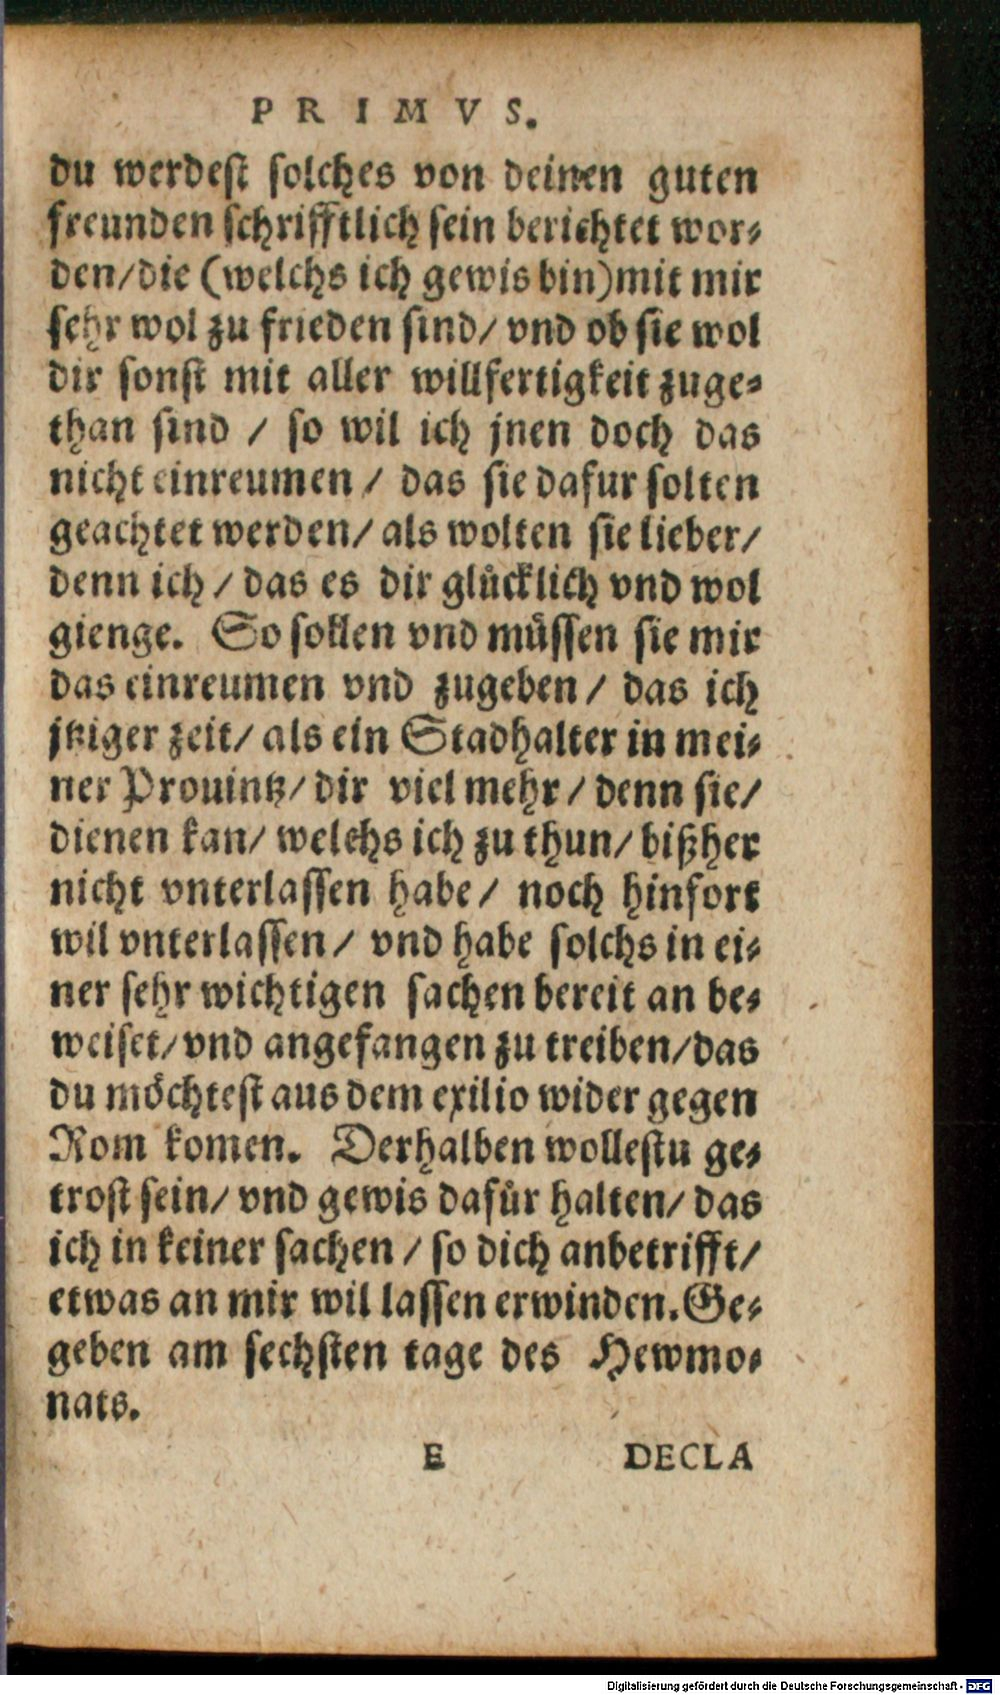 PRIMVS.
du werdest solches von deinen guten
freunden schrifftlich sein berichtet wor-
den/die (welchs ich gewis bin)mit mir
sehr wol zu frieden sind/ vnd ob sie wol
dir sonst mit aller willfertigkeit zuge-
than sind / so wil ich jnen doch das
nicht einreumen / das sie dafur solten
geachtet werden/ als wolten sie lieber/
denn ich / das es dir glücklich vnd wol
gienge. So sollen vnd müssen sie mir
das einreumen vnd zugeben/ das ich
jtziger zeit/ als ein Stadhalter in mei-
ner Prouintz/ dir viel mehr / denn sie/
dienen kan/ welchs ich zu thun/ bißher
nicht vnterlassen habe/ noch hinfort
wil vnterlassen/ vnd habe solchs in ei-
ner sehr wichtigen sachen bereit an be-
weiset/ vnd angefangen zu treiben/das
du möchtest aus dem exilio wider gegen
Rom komen. Derhalben wollestu ge-
trost sein/ vnd gewis dafür halten/ das
ich in keiner sachen / so dich anbetrifft/
etwas an mir wil lassen erwinden. Ge-
geben am sechsten tage des Hewmo-
nats.
E DECLA
Digitalisierung gefördert durch die Deutsche Forschungsgemeinschaft - DFG